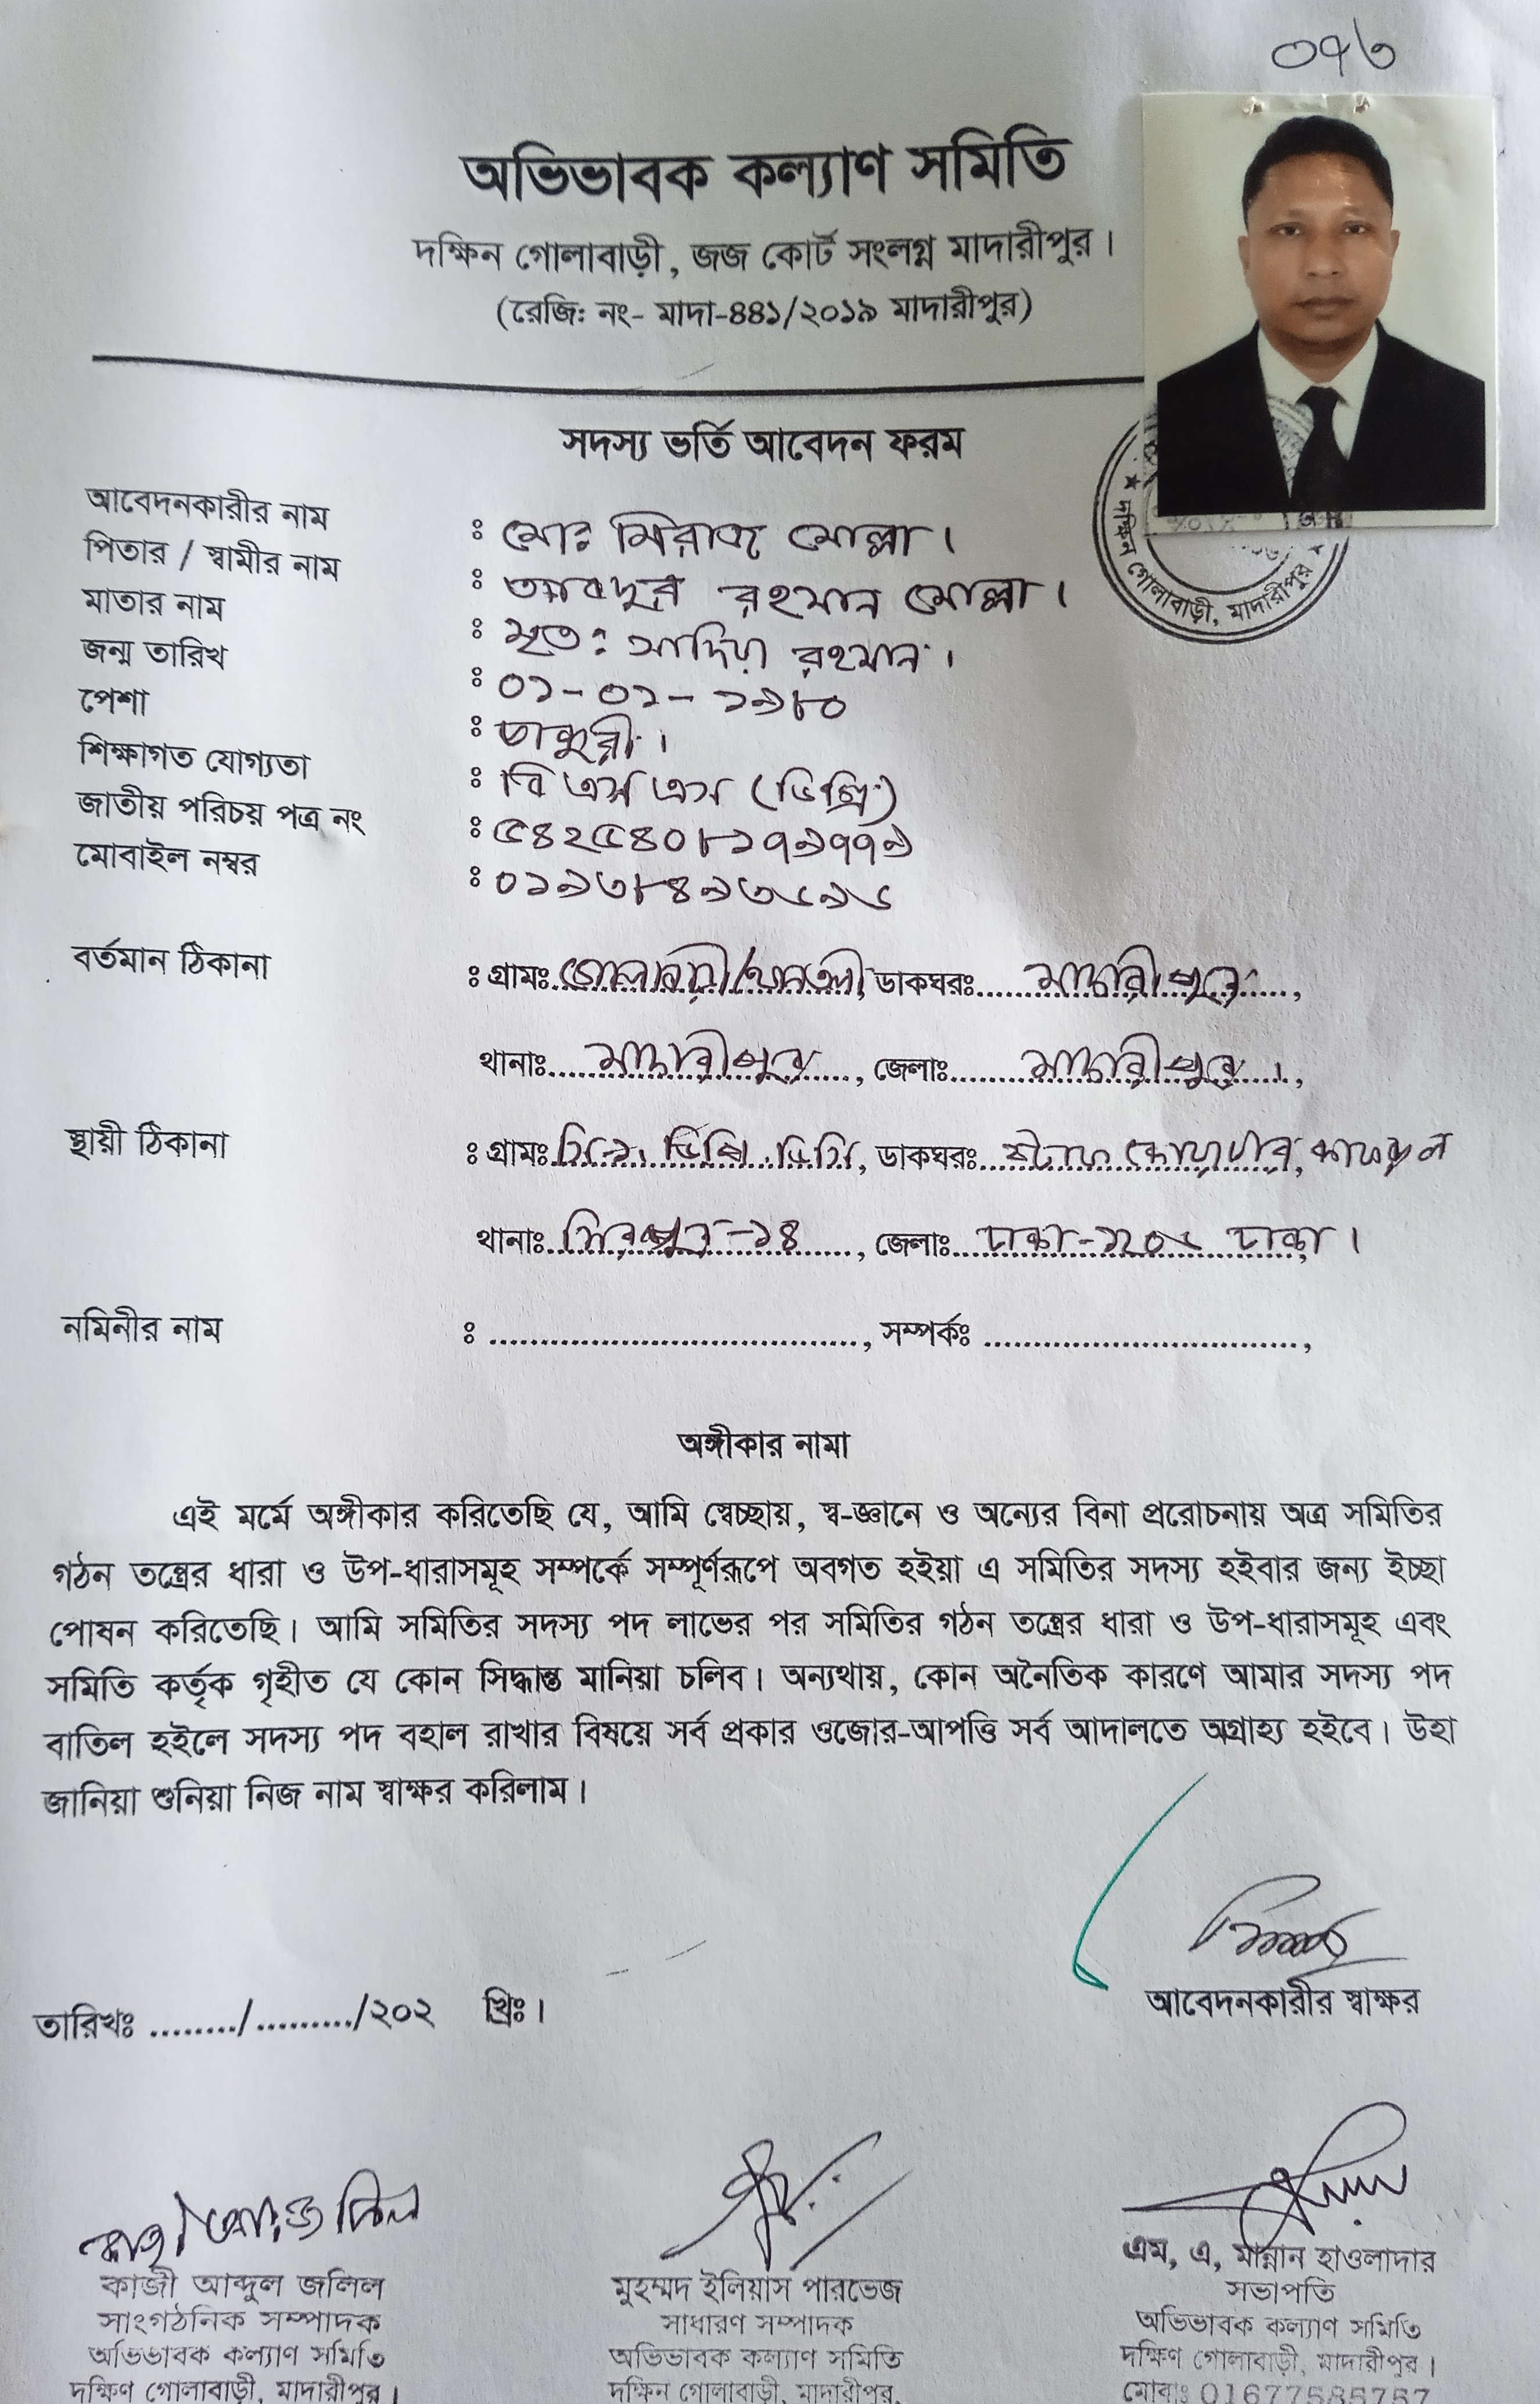 ০৭৬
অভিভাবক কল্যাণ সমিতি
দক্ষিন গোলাবাড়ী, জজ কোর্ট সংলগ্ন মাদারীপুর।
(রেজি: নং- মাদা-৪৪১/২০১৯ মাদারীপুর)
সদস্য ভর্তি আবেদন ফরম
আবেদনকারীর নাম : মোঃ মিরাজ মোল্লা।
পিতার / স্বামীর নাম : আবদুর রহমান মোল্লা।
মাতার নাম : মৃতঃ রহমান।
জন্ম তারিখ : ০১-০১-১৯৮০
পেশা : চাকুরী।
শিক্ষাগত যোগ্যতা : বি এস এস (ডিগ্রি)
জাতীয় পরিচয় পত্র নং : ৫৪২৫৪০৮১৭৯৭৭৯
মোবাইল নম্বর : ০১৯৩৮৪৯৩৬৯৬
বর্তমান ঠিকানা : গ্রামঃ ডাকঘরঃ মাদারীপুর,
থানাঃ মাদারীপুর, জেলাঃ মাদারীপুর।,
স্থায়ী ঠিকানা : গ্রামঃ ডাকঘরঃ স্টাফ কোয়ার্টার,
থানাঃ মিরপুর-১৪, জেলাঃ ঢাকা-১২০৬ ঢাকা।
নমিনীর নাম : ............, সম্পর্কঃ ............,
অঙ্গীকার নামা
এই মর্মে অঙ্গীকার করিতেছি যে, আমি স্বেচ্ছায়, স্ব-জ্ঞানে ও অন্যের বিনা প্ররোচনায় অত্র সমিতির
গঠন তন্ত্রের ধারা ও উপ-ধারাসমূহ সম্পর্কে সম্পূর্ণরূপে অবগত হইয়া এ সমিতির সদস্য হইবার জন্য ইচ্ছা
পোষন করিতেছি। আমি সমিতির সদস্য পদ লাভের পর সমিতির গঠন তন্ত্রের ধারা ও উপ-ধারাসমূহ এবং
সমিতি কর্তৃক গৃহীত যে কোন সিদ্ধান্ত মানিয়া চলিব। অন্যথায়, কোন অনৈতিক কারণে আমার সদস্য পদ
বাতিল হইলে সদস্য পদ বহাল রাখার বিষয়ে সর্ব প্রকার ওজোর-আপত্তি সর্ব আদালতে অগ্রাহ্য হইবে। উহা
জানিয়া শুনিয়া নিজ নাম স্বাক্ষর করিলাম।
আবেদনকারীর স্বাক্ষর
তারিখঃ ......../........./২০২ খ্রিঃ।
কাজী আব্দুল জলিল
সাংগঠনিক সম্পাদক
অভিভাবক কল্যাণ সমিতি
দক্ষিণ গোলাবাড়ী, মাদারীপুর।
মুহম্মদ ইলিয়াস পারভেজ
সাধারণ সম্পাদক
অভিভাবক কল্যাণ সমিতি
দক্ষিন গোলাবাড়ী, মাদারীপুর,
এম, এ, মান্নান হাওলাদার
সভাপতি
অভিভাবক কল্যাণ সমিতি
দক্ষিণ গোলাবাড়ী, মাদারীপুর।
মোবাঃ 01677585757
দক্ষিন গোলাবাড়ী, মাদারীপুর